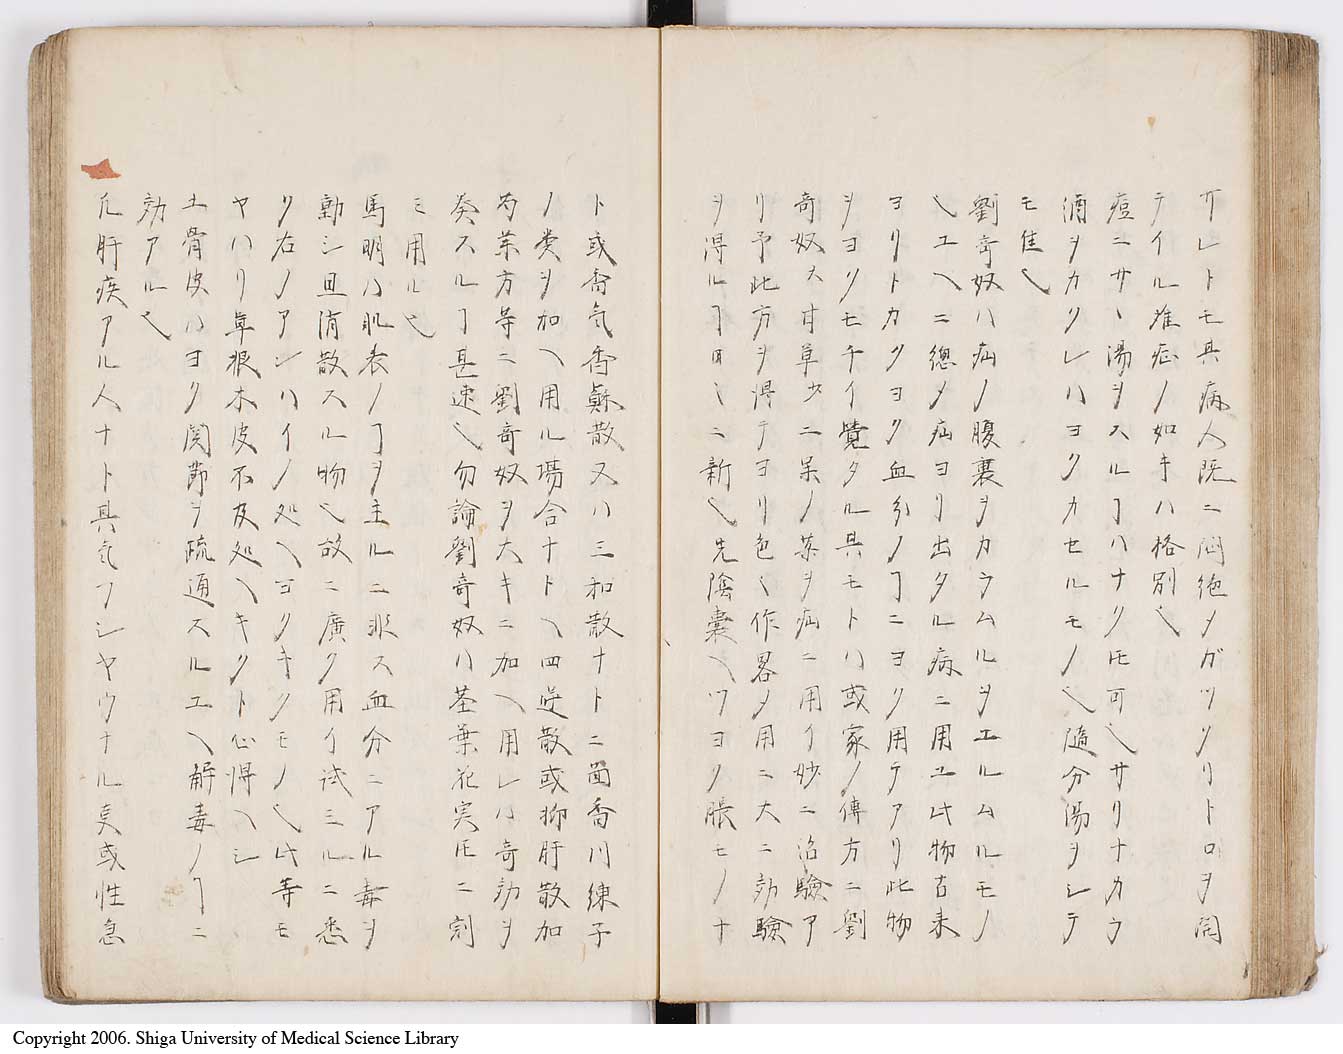 サレトモ其病人既ニ悶絶メガツクリト口ヲ開
テイル難症ノ如キハ格別也
痘ニサヽ湯ヲスルヿハナクㇳモ可也サリナカラ
酒ヲカクレハヨクカセルモノ也随分湯ヲシテ
モ佳也
劉奇奴ハ疝ノ腹裏ヲカラムルヲユルムルモノ
也ユヘニ總メ疝ヨリ出タル病ニ用ユ此物古来
ヨリトカクヨク血分ノヿニヨク用テアリ此物
ヲヨクモチイ覚タル其モトハ或家ノ傳方ニ劉
奇奴大甘草少二味ノ薬ヲ疝ニ用イ妙ニ治驗ア
リ予此方ヲ得テヨリ色〻作畧メ用ニ大ニ効驗
ヲ得ルヿ日〻ニ新也先陰嚢ヘツヨク脹モノナ
ト或香気香蘇散又ハ三和散ナトニ茴香川練子
ノ類ヲ加ヘ用ル場合ナトヘ四逆散或抑肝散加
芍薬方等ニ劉奇奴ヲ大キニ加ヘ用レハ奇効ヲ
奏スルヿ甚速也勿論劉奇奴ハ茎葉花実ㇳモニ剉
ミ用ル也
馬明ハ肌表ノヿヲ主ルニ非ス血分ニアル毒ヲ
動シ且消散スル物也故ニ廣ク用イ試ミルニ悉
ク右ノアンハイノ処ヘヨクキクモノ也此等モ
ヤハリ草根木皮不及処ヘキクト心得ヘシ
土骨皮ハヨク関節ヲ疏通スルユヘ解毒ノヿニ
効アル也
凡肝疾アル人ナト其気フシヤウナル㕝或性急